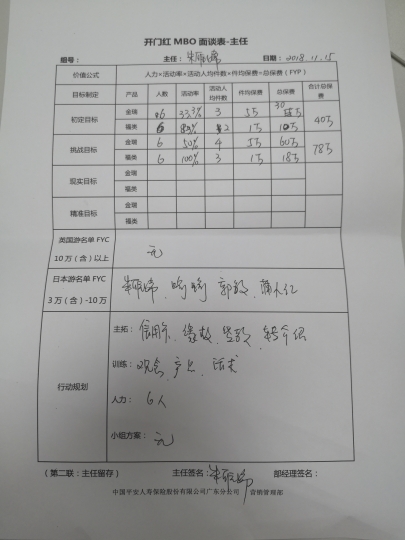 开门红 MBO 面谈表-主任
组号： 主任： 日期：2018.11.15
价值公式 人力×活动率×活动人均件数×件均保费=总保费（FYP）
目标制定 产品 人数 活动率 活动人均件数 件均保费 总保费 合计总保费
初定目标 金瑞 6 33.3% 3 5万 30万 40万
福类 6 2 1万 10万
挑战目标 金瑞 6 50% 4 5万 60万 78万
福类 6 100% 3 1万 18万
现实目标 金瑞
福类
精准目标 金瑞
福类
英国游名单 FYC 10 万（含）以上 无
日本游名单 FYC 3 万（含）-10 万
行动规划
主拓：信用卡、缘故、转介绍
训练：观念、产品、话术
人力：6人
小组方案：无
（第二联：主任留存） 主任签名： 部经理签名：
中国平安人寿保险股份有限公司广东分公司 营销管理部